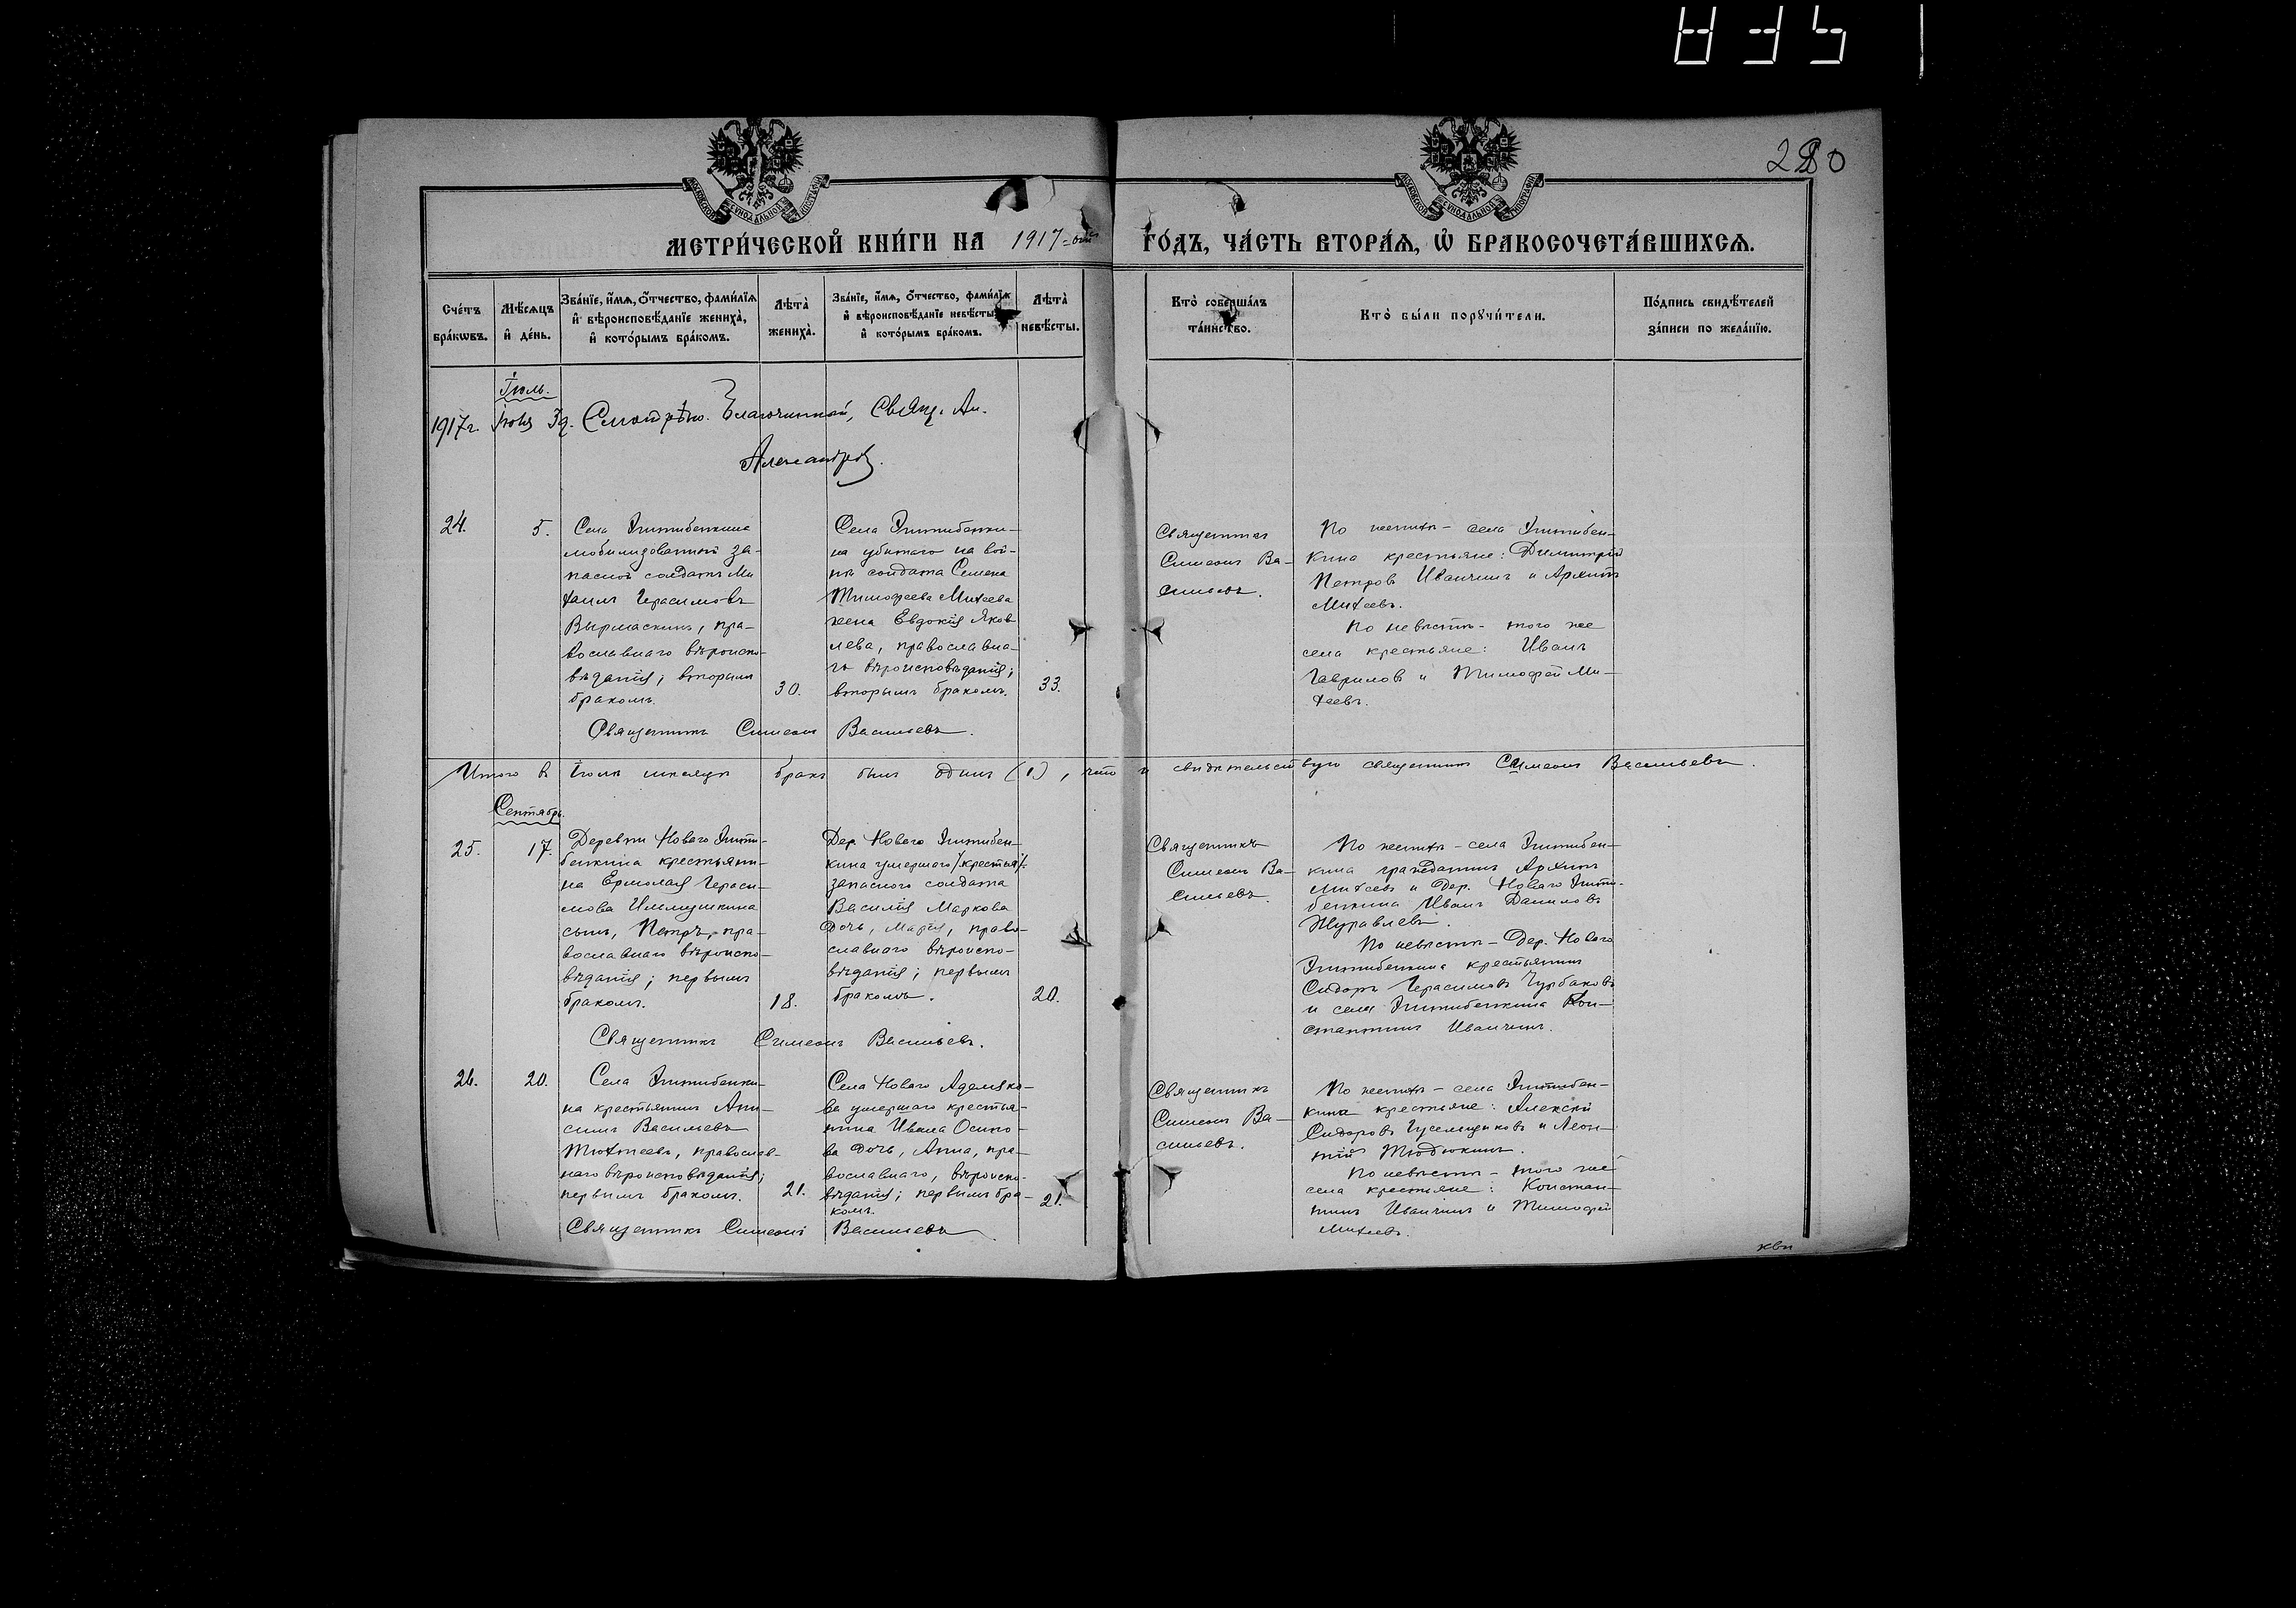 280
МОСКОВСКОЙ СѴНОДАЛЬНОЙ ТИПОГРАФІИ
МОСКОВСКОЙ СѴНОДАЛЬНОЙ ТИПОГРАФІИ
МЕТРИ́ЧЕСКОЙ КНИ́ГИ НА 1917-ый ГО́ДЪ, ЧА́СТЬ ВТОРА́Ѧ, Ѡ҆ БРАКОСОЧЕТА́ВШИХСѦ.
Сче́тъ бра́кѡвъ.
Мѣ́сѧцъ и҆ де́нь.
Зва́нїе, и҆́мѧ, ѻ҆́тчество, фами́лїѧ и҆ вѣроисповѣ́данїе жениха̀, и҆ кото́рымъ бра́комъ.
Лѣта̀ жениха̀.
Зва́нїе, и҆́мѧ, ѻ҆́тчество, фами́лїѧ и҆ вѣроисповѣ́данїе невѣ́сты, и҆ кото́рымъ бра́комъ.
Лѣта̀ невѣ́сты.
Кто̀ соверша́лъ та́инство.
Кто̀ бы́ли порꙋчи́тели.
По́дпись свидѣ́телей за́писи по жела́нїю.
Іюль.
1917 г. Смотрѣлъ. Благочинный, Свящ. Ал.
Александровъ.
24.
5.
Села
мобилизованный за-
пасной солдатъ Ми
хаилъ Герасимовъ
Вырмаскинъ, пра-
вославнаго вѣроиспо-
вѣданія; вторымъ
бракомъ.
30.
Села
на убитаго на вой-
нѣ солдата Семена
Тимофеева Михеева
жена Евдокія Яков
лева, православна-
го вѣроисповѣданія;
вторымъ бракомъ.
33.
Священникъ
Симеонъ Ва-
сильевъ.
По женихѣ - села
кина крестьяне: Димитрій
Петровъ Иваничинъ и Архипъ
Михеевъ.
По невѣстѣ - того же
села крестьяне: Иванъ
Гавриловъ и Тимофей Ми-
хеевъ.
Священникъ Симеонъ Васильевъ.
Итого въ Іюлѣ мѣсяцѣ бракъ былъ одинъ (1), что и свидѣтельствую священникъ Симеонъ Васильевъ.
Сентябрь.
25.
17.
Деревни Новаго
крестьяни-
на Ермолая Гераси-
мова
сынъ, Петръ, пра-
вославнаго вѣроиспо-
вѣданія; первымъ
бракомъ.
18.
Дер. Новаго
кина умершаго /крестья/
запаснаго солдата
Василія Маркова
дочь, Марія, право-
славнаго вѣроиспо-
вѣданія; первымъ
бракомъ.
20.
Священникъ
Симеонъ Ва-
сильевъ.
По женихѣ - села
кина гражданинъ Архипъ
Михеевъ и дер. Новаго
Иванъ Даниловъ
Журавлевъ.
По невѣстѣ - дер. Новаго
крестьянинъ
Сидоръ Герасимовъ Чурбаковъ
и села Кон-
стантинъ Иваничинъ.
Священникъ Симеонъ Васильевъ.
26.
20.
Села
на крестьянинъ Ани-
симъ Васильевъ
православ-
наго вѣроисповѣданія;
первымъ бракомъ.
21.
Села Новаго Адемяко-
ва умершаго крестья-
нина Ивана Осипо-
ва дочь, Анна, пра-
вославнаго, вѣроиспо-
вѣданія; первымъ бра-
комъ.
21.
Священникъ
Симеонъ Ва-
сильевъ.
По женихѣ - села
кина крестьяне: Алексѣй
Сидоровъ и Леон-
тій Тюдюкинъ.
По невѣстѣ - того же
села крестьяне: Констан-
тинъ Иваничинъ и Тимофей
Михеевъ.
Священникъ Симеонъ Васильевъ